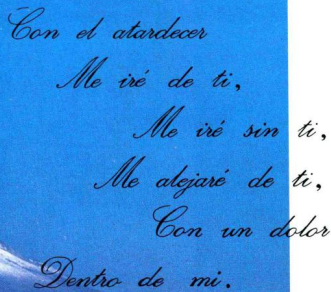 Con el atardecer
Me iré de ti,
Me iré sin ti,
Me alejaré de ti,
Con un dolor
Dentro de mi.